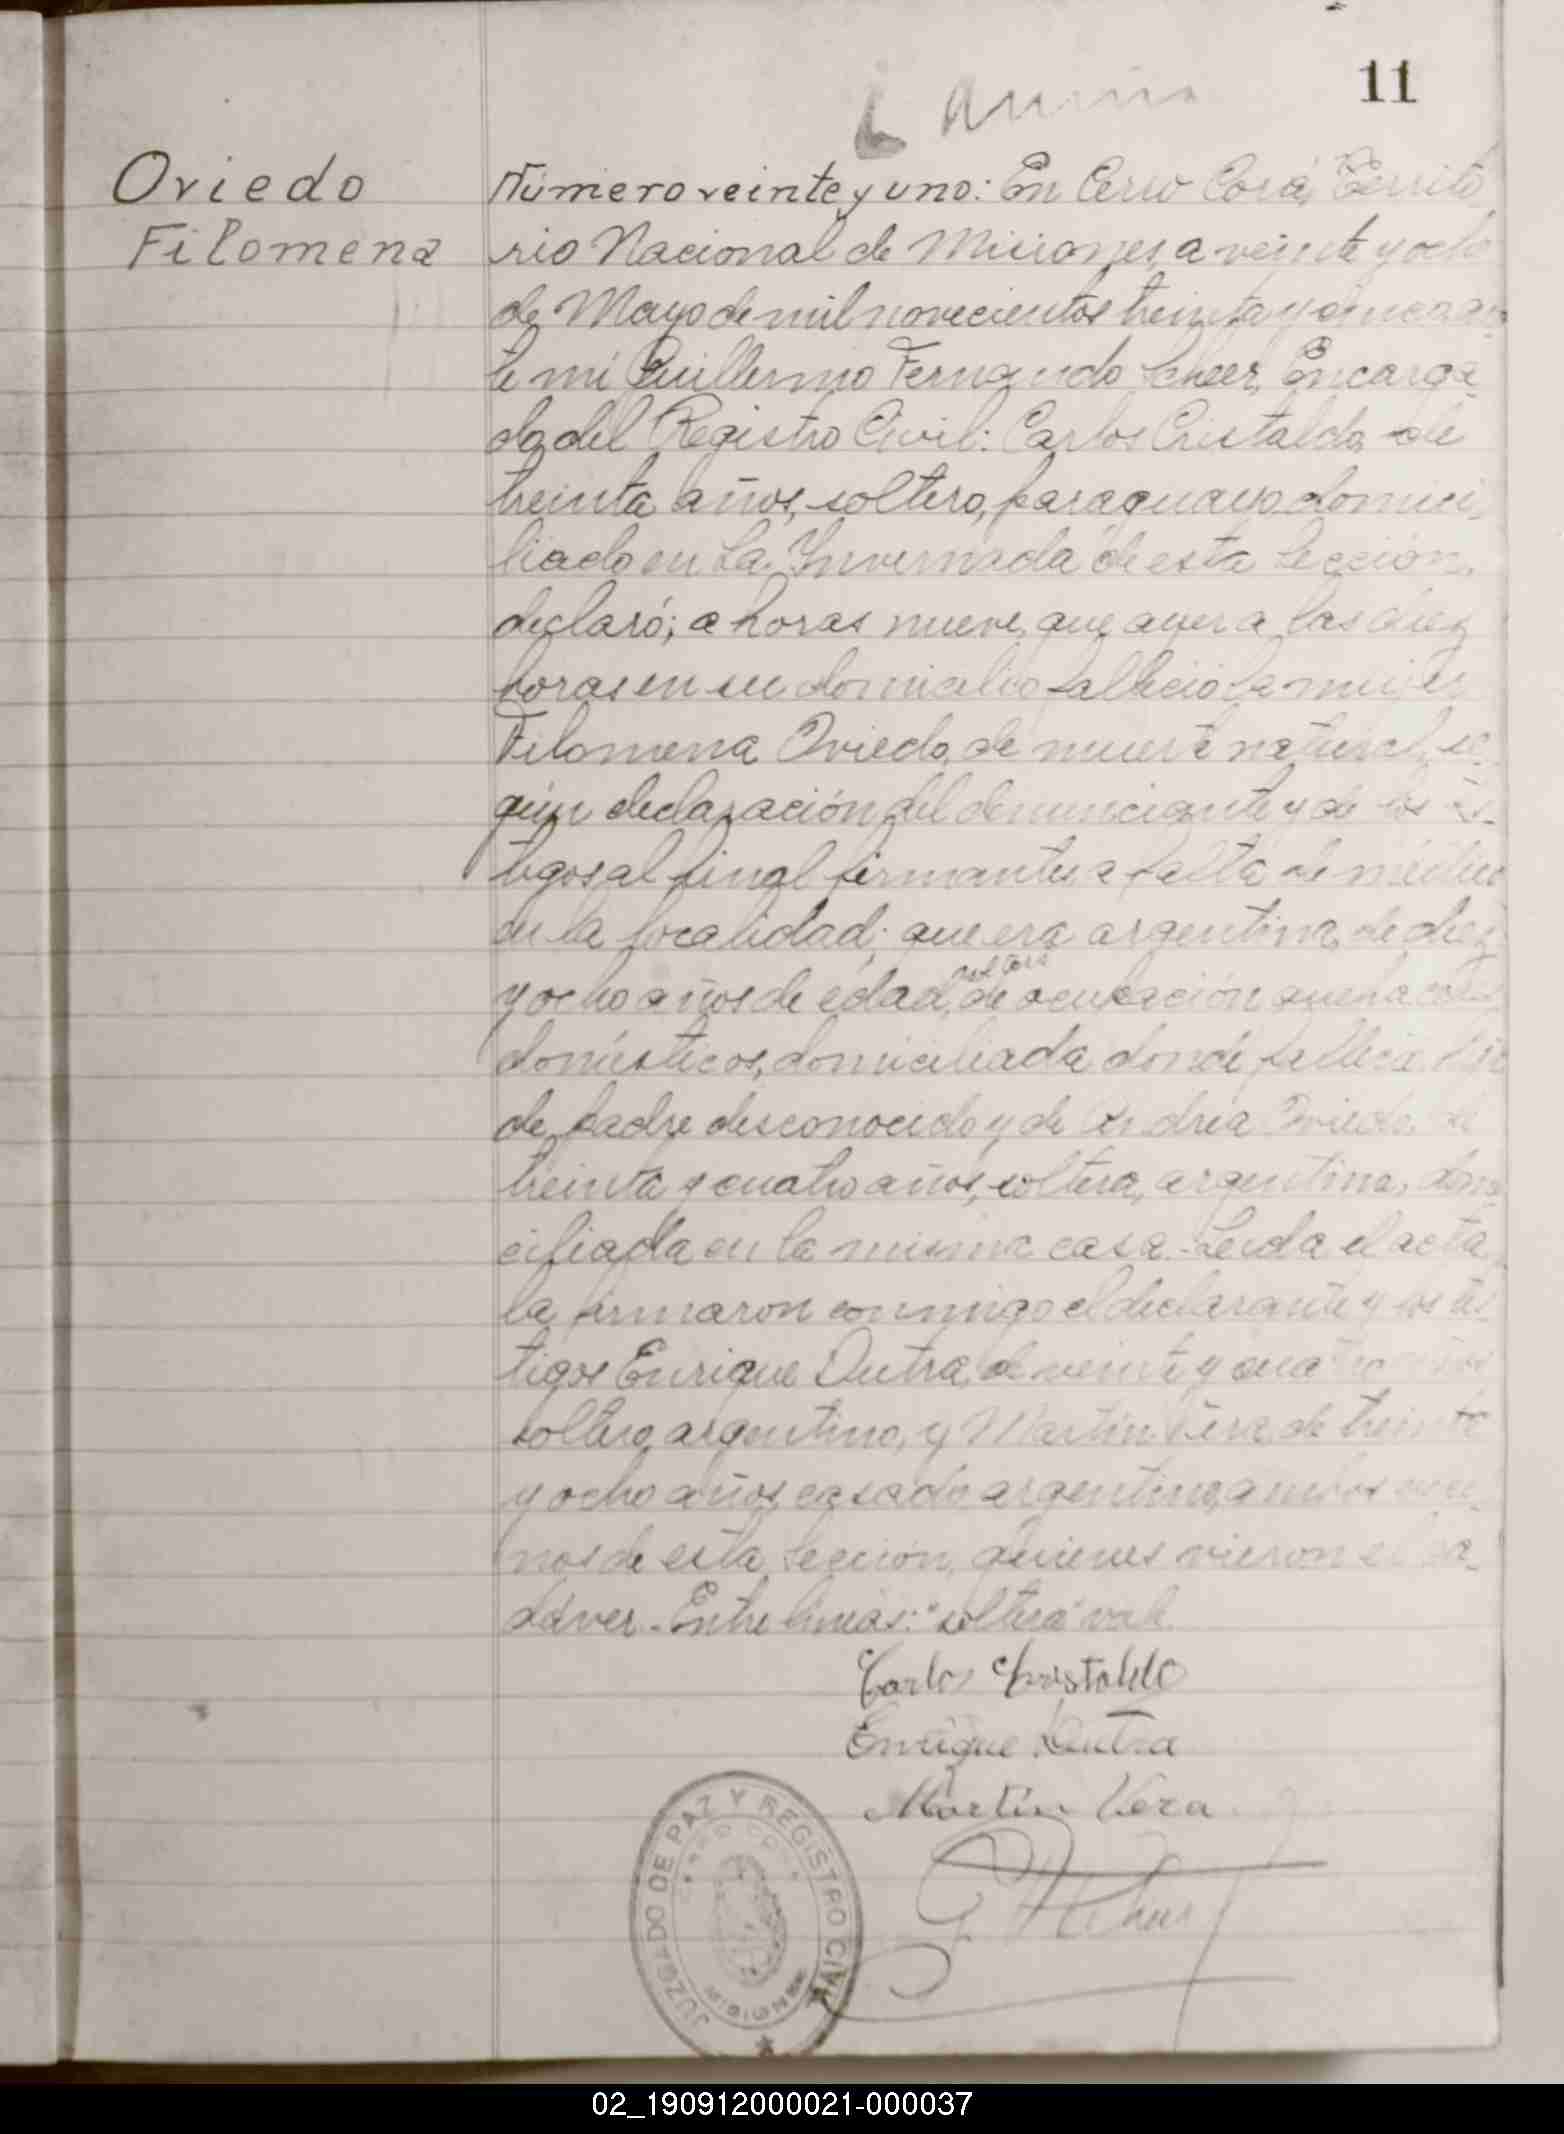 11
Oviedo
Filomena
Número veinte y uno: En Cerro Corá, Territo
rio Nacional de Misiones, a veinte y ocho
de Mayo de mil novecientos treinta y cinco an
te mi Guillermo Fernando Scheer, Encarga
do del Registro Civil: Carlos Cristaldo, de
treinta años, soltero, paraguayo, domici
liado en La Invernada de esta Sección,
declaró; a horas nueve, que ayer a las diez
horas en su domicilio falleció la mujer
Filomena Oviedo, de muerte natural, se
gún declaración del denunciante y de los tes-
tigos al final firmantes a falta de médico
en la localidad; que era argentina, de diez
y ocho años de edad, soltera de ocupación quehaceres
domésticos, domiciliada donde falleció, hija
de padre desconocido y de Andrea Oviedo, de
treinta y cuatro años, soltera, argentina, domi
ciliada en la misma casa.- Leida el acta,
la firmaron conmigo el declarante y los tes-
tigos Enrique Dutra, de veinte y cuatro años
soltero, argentino, y Martín Vera, de treinta
y ocho años, casado argentino, ambos veci-
nos de esta Sección, quienes vieron el ca-
dáver.- Entre lineas: "soltera" vale.
Carlos Cristaldo
Enrique Dutra
Martín Vera
JUZGADO DE PAZ Y REGISTRO CIVIL
CERRO CORÁ
MISIONES
02_190912000021-000037